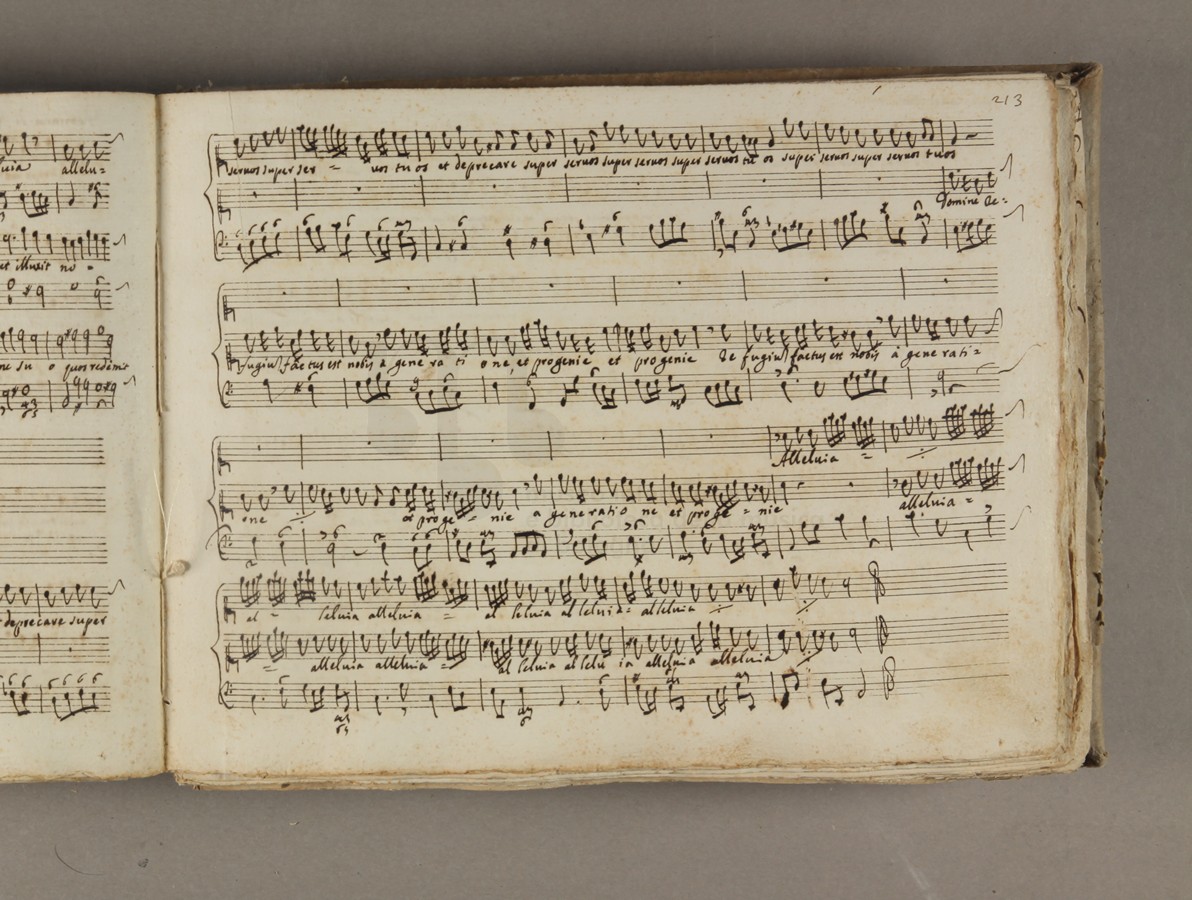 uia allelu=
et illuxit no -
ne su o quos redemit
deprecare super
213
servos super ser - vos tu os et deprecare super servos super servos super servos tu os super servos super servos tuos
Domine Re=
fugiu factus est nobis à gene ra ti o ne, et progenie et progenie Re fugiu factus est nobis à gene rati=
Alleluia =
one et proge = nie a generatio ne et proge = nie alleluia =
al - leluia alleluia = al leluia al leluia: alleluia
alleluia alleluia = al leluia al lelu ia alleluia alleluia